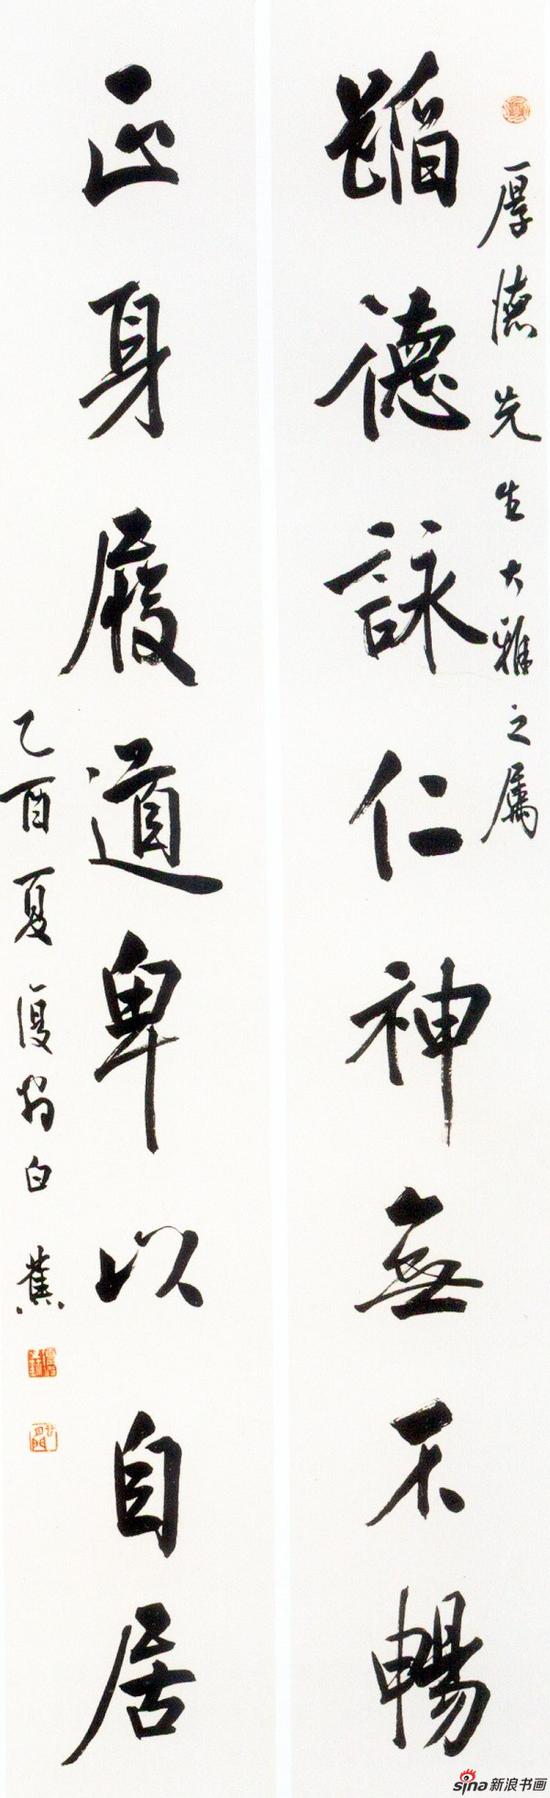 厚德先生大雅之屬
蹈德詠仁神無不暢
正身履道卑以自居
乙酉夏復翁白蕉
sina新浪书画